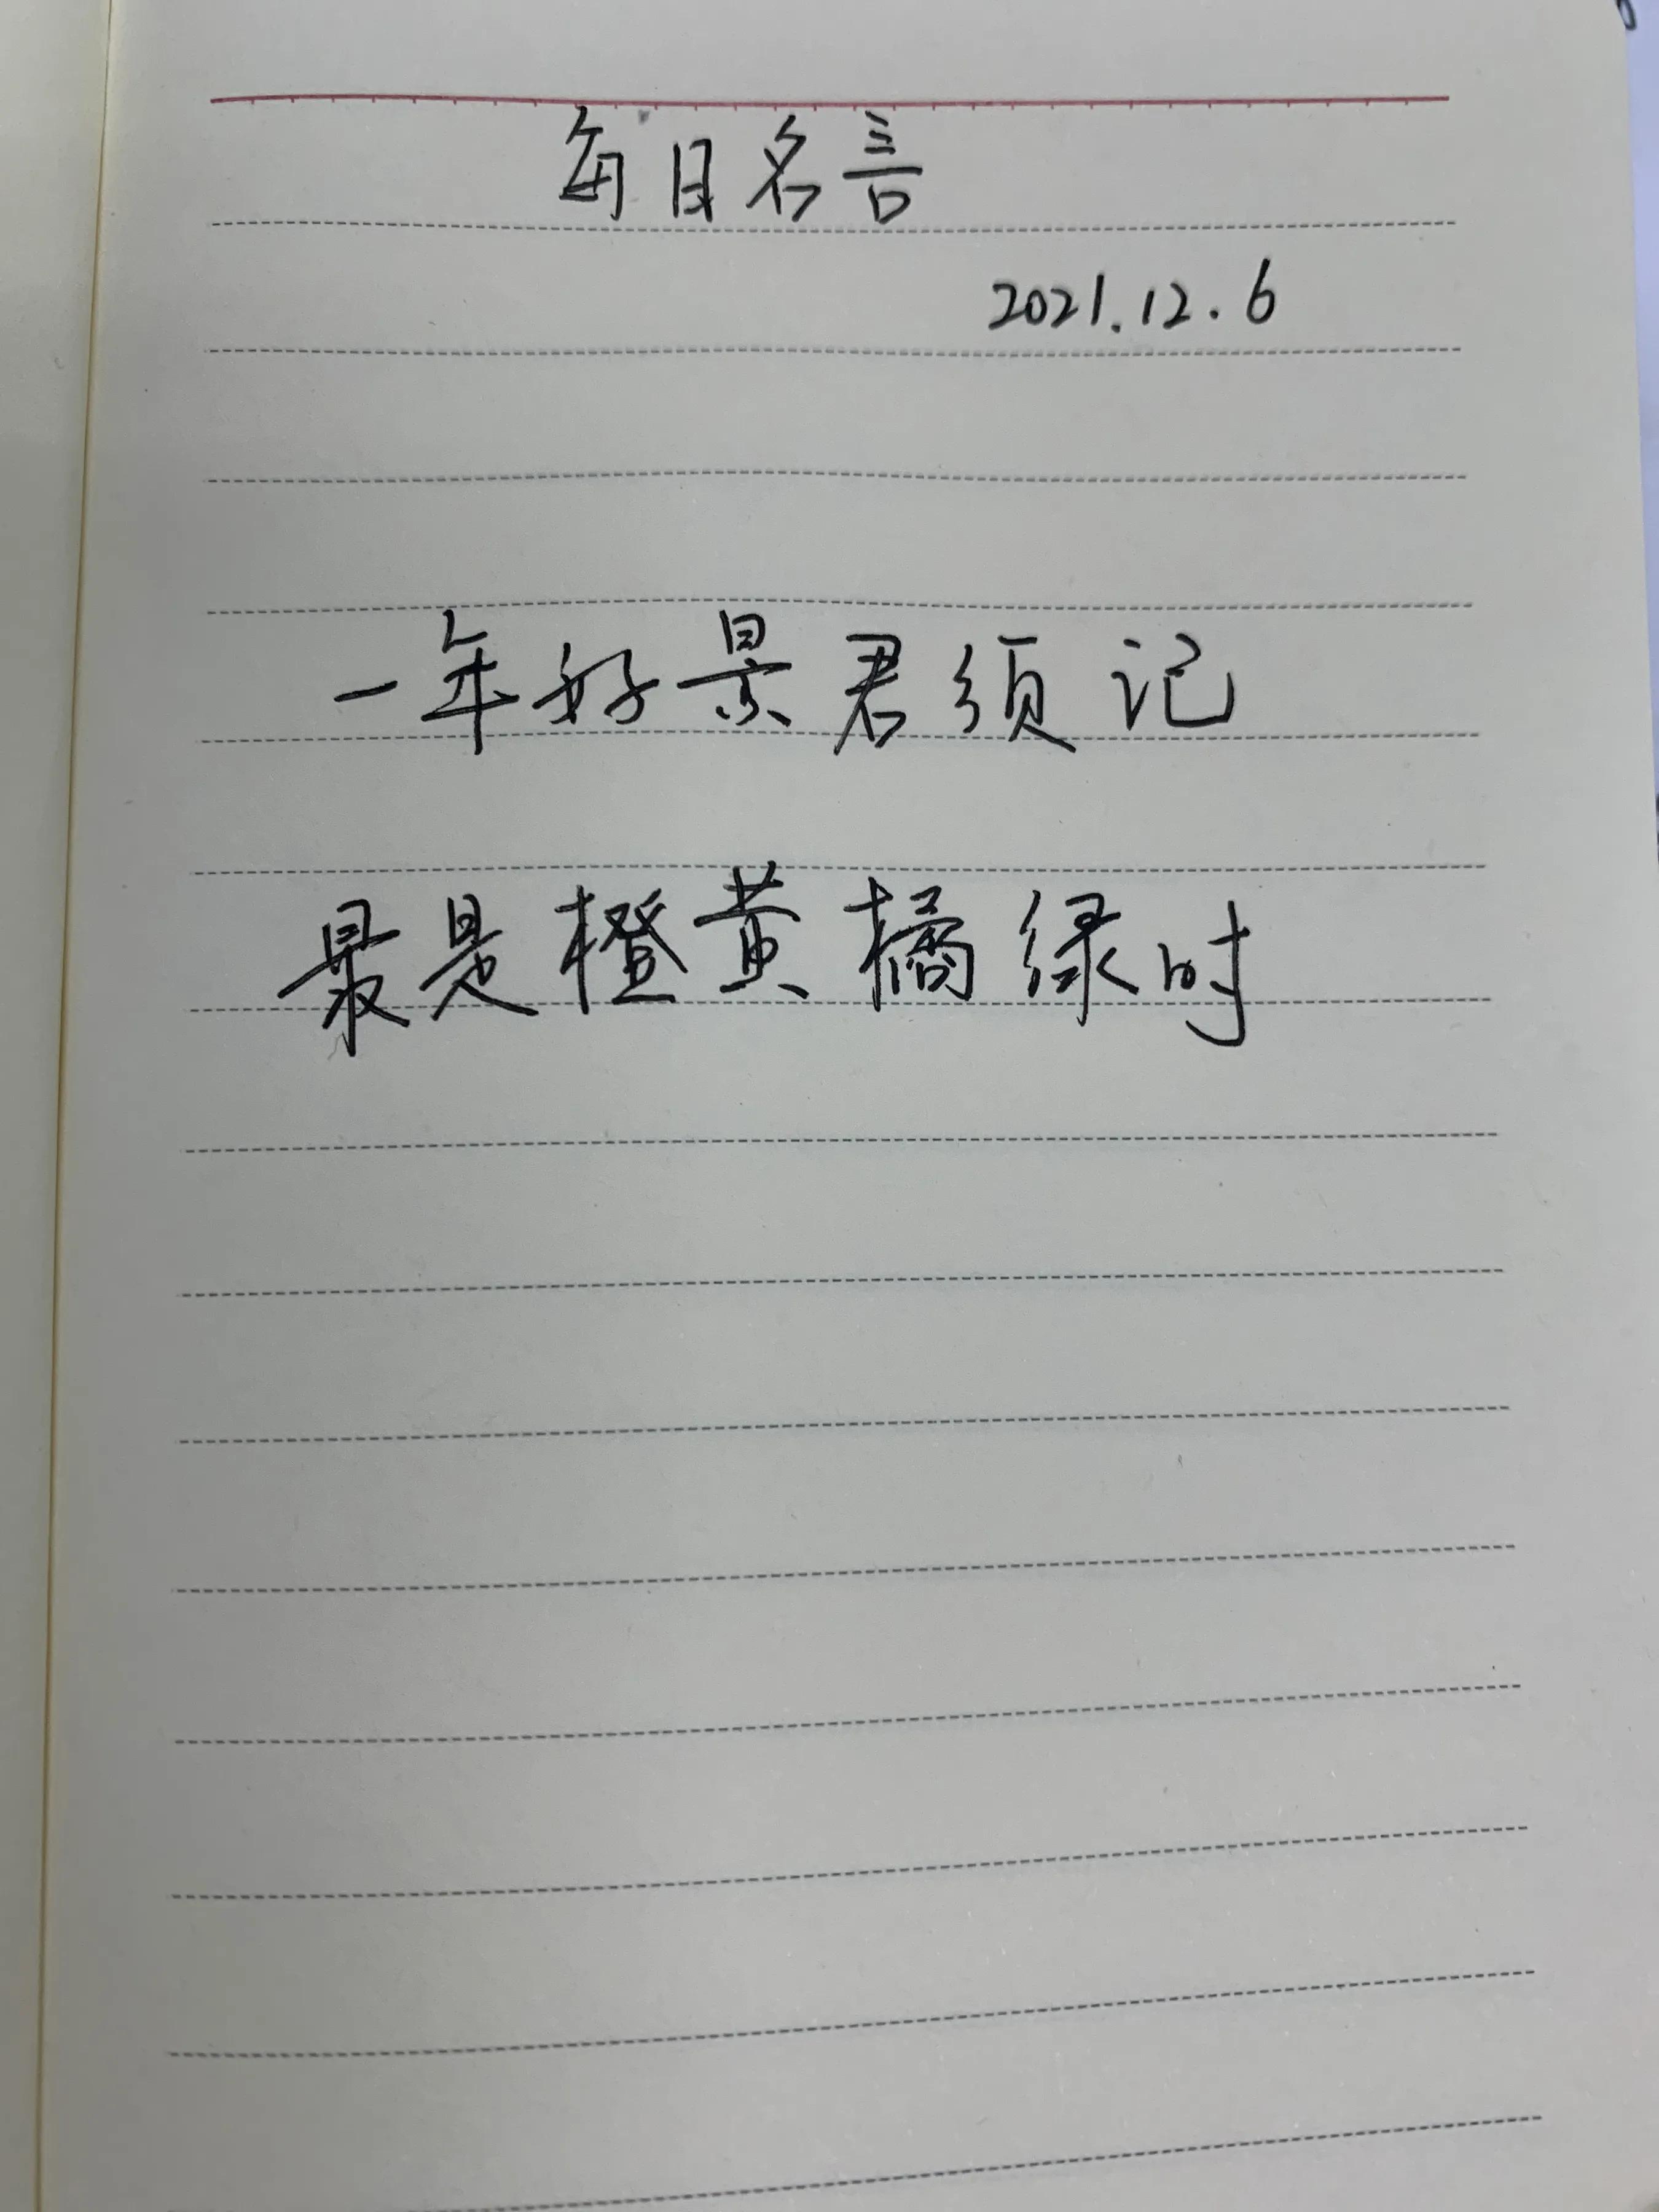 每日名言
2021.12.6
一年好景君须记
最是橙黄橘绿时